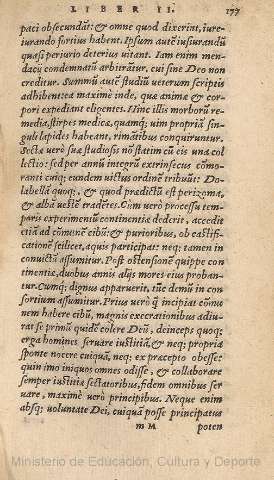 LIBER II. 177
paci obsecundāt: & omne quod dixerint, iure-
iurando fortius habent. Ipsum autē iusiurandū
quasi periurio deterius uitant. Iam enim men-
dacij condemnatū arbitrātur, cui sine Deo non
creditur. Summū autē studiū ueterum scriptis
adhibent: ea maximè inde, quæ animæ & cor-
pori expediant eligentes. Hinc illis morborū re-
media, stirpes medicæ, quamq; uim propriā sin-
guli lapides habeant, rimātibus conquiruntur.
Sectæ uerò suæ studiosis nō statim cū eis una col-
lectio: sed per annū integrū extrinsecus cōmo-
ranti cuiq; eundem uictus ordinē tribuūt: Do-
labellā quoq; , & quod prædictū est perizoma,
& albā uestē tradētes. Cùm uerò processu tem-
poris experimentū continentiæ dederit, accedit
etiā ad cōmunē cibū: & purioribus, ob castifi-
cationē scilicet, aquis participat: neq; tamen in
conuictū assumitur. Post ostensionē quippe con
tinentiæ, duobus annis alijs mores eius proban-
tur. Cumq; dignus apparuerit, tūc demū in con
sortium assumitur. Prius uerò q̄ incipiat cōmu
nem habere cibū, magnis execrationibus adiu-
rat se primū quidē colere Deū, deinceps quoq;
erga homines seruare iustitiā, & neq; propria
sponte nocere cuiquā, neq; ex præcepto obesse:
quin imo iniquos omnes odisse, & collaborare
semper iustitiæ sectatoribus, fidem omnibus ser
uare, maximè uerò principibus. Neque enim
absq; uoluntate Dei, cuiquā posse principatus
m M poten
Ministerio de Educación, Cultura y Deporte